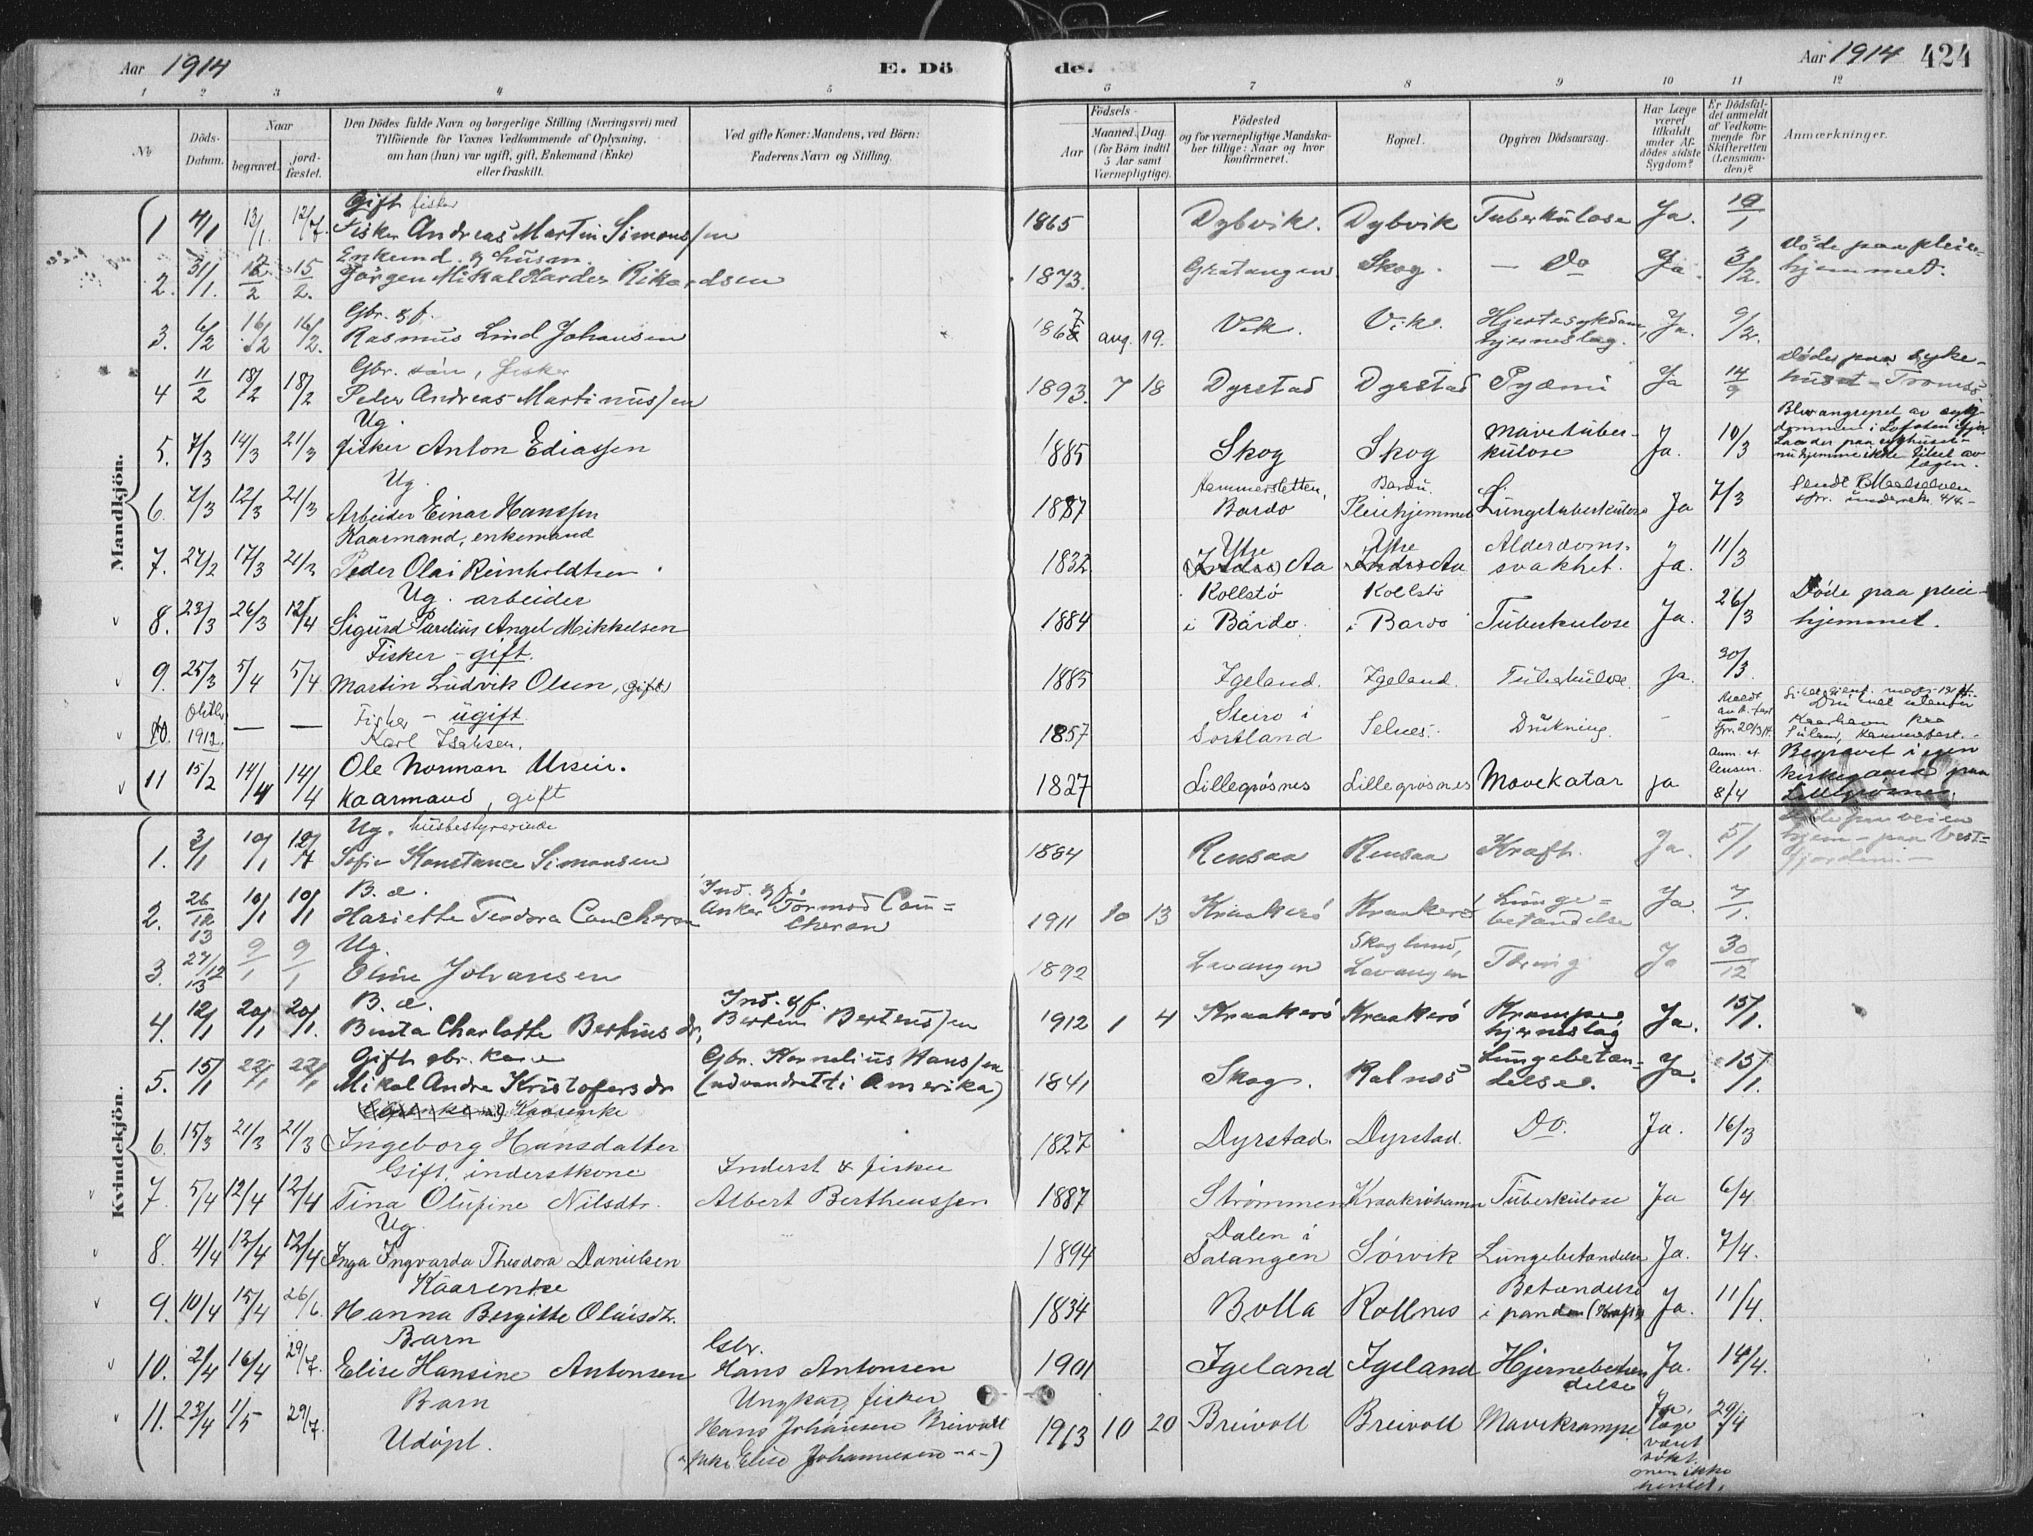 Aar 1914
E. Döde.
Aar 1914 424
1 2 3 4 5 6 7 8 9 10 11 12
No
Döds-Datum.
Naar
begravet.
jordfæstet.
Den Dödes fulde Navn og borgerlige Stilling (Næringsvei) med
Tilföiende for Voxnes Vedkommende af Oplysning,
om han (hun) var ugift, gift, Enkemand (Enke)
eller fraskilt.
Ved gifte Koner: Mandens, ved Börn:
Faderens Navn og Stilling.
Födsels-
Aar
Maaned, Dag
(for Börn indtil
5 Aar samt
Værnepligtige).
Födested
og for værnepligtige Mandskaber tillige: Naar og hvor
konfirmeret.
Bopæl.
Opgiven Dödsaarsag.
Har Læge
været
tilkaldt
under Afdödes sidste
Sygdom?
Er Dödsfaldet anmeldt
af Vedkommende for
Skifteretten
(Lensmanden)?
Anmærkninger.
Mandkjön.
Gift fisker
1 4/1 13/1 12/7 Fisker Andreas Martin Simonssen 1865 Dybvik. Dybvik Tuberkulose Ja. 19/1
Enkemd. og husm.
2. 31/1 15/2 15/2. Jörgen Mikal Harder Rikardsen 1873. Gratangen Skog. — Do Ja. 3/2. Döde paa pleiehjemmet.
Gbr. & f.
3. 6/2 16/2 16/2. Rasmus Lind Johansen 1867 aug. 19. Vik. Vik. Hjertesykdom, hjerneslag. Ja. 9/2.
Gbr. sön, fisker
4 11/2 18/2 18/2 Peder Andreas Martinussen 1893. 7 18 Dyrstad Dyrstad Pyæmi Ja 14/2 Döde paa sykehuset - Tromsö
Ug.
5. 7/3 14/3 21/3 fisker Anton Ediassen 1885 Skog Skog Mavetuberkulose Ja. 10/3 Blev angrepet av sykdommen i Lofoten
Ug.
6. 7/3 12/3 21/3 Arbeider Einar Hanssen 1887 Hammersletten, Bardo Bardu. Pleiehjemmet Lungetuberkulose Ja 7/3
Kaarmand, enkemand
7. 27/2 17/3 21/3 Peder Olai Reinholdtsen 1832 Ytre Aa Ytre Aa Alderdomssvakhet. Ja. 11/3
Ug. arbeider
8. 23/3 26/3 12/4 Sigurd Pareliüs Angel Mikkelsen 1884 Kollstö i Bardo. Kollstö i Bardo Tuberkulose Ja. 26/3 Döde paa pleiehjemmet.
Fisker - gift.
9. 25/3 5/4 5/4 Martin Ludvik Olsen, (gift) 1885 Igeland. Igeland. Tuberkulose. Ja. 30/3
10. Oktbr 1912. — — Fisker - ugift. Karl Isaksen. 1857 Steiro i Sortland Selnes. Drukning. -
11 15/2 14/4 14/4 Ole Norman Ursin. Kaarmand, gift 1827 Lillegrösnes Lillegrösnes Mavekatar ja 8/4 Begravet i egen kirkegaard paa Lillegrösnes.
Kvindekjön.
Ug. husbestyrerinde
1. 3/1 10/1 12/7 Sofie Konstance Simonsen 1884 Rensaa Rensaa Kræft. Ja. 5/1 Döde paa veien hjem - paa Vestfjorden. -
B. æ.
2. 26/12 13 10/1 10/1 Hariette Teodora Coucheron Ind. & f. Anker Tormod Coucheron 1911 10 13 Kraakerö Kraakerö Lungebetændelse Ja. 7/1.
Ug.
3. 27/12 13 9/1 9/1 Oline Johansen 1892 Lavangen Skoglund, Lavangen Tæring Ja 30/12
B. æ.
4. 12/1 20/1 20/1. Binta Charlotte Bertiüs dr, Ind. & f. Bertin Berteussen 1912 1 4 Kraakerö Kraakerö Krampe hjerneslag Ja. 15/1.
Gift gbr. kone
5. 15/1 22/1 22/1 Mikal Andrea Kristofersdr Gbr. Kornelius Hanssen (udvandret i Amerika) 1841 Skog. Ralnes Lungebetændelse. Ja. 15/1.
Kaarenke
6. 15/3 21/3 21/3 Ingeborg Hansdatter 1827 Dyrstad. Dyrstad. Do. Ja. 16/3
Gift, inderstkone
7. 5/4 12/4 12/4 Tina Olufine Nilsdtr. Inderst & fisker Albert Bertheussen 1887 Strömmen Kraakröhamn Tuberkulose Ja 6/4
Ug.
8. 4/4 13/4 12/4 Inga Ingvarda Theodora Danielsen 1894 Dalen i Salangen Sörvik Lungebetændelse Ja. 7/4.
Kaarenke
9. 10/4 15/4 26/6. Hanna Bergitte Olaisdt. 1834 Bolla Rollnes Betændelse i panden Ja. 11/4.
Barn
10. 2/4 16/4 29/7. Elise Hansine Antonsen Gbr. Hans Antonsen 1901 Igeland Igeland Hjernebetændelse Ja. 14/4.
Barn
11. 23/4 1/5 29/7. Udöpt. Ungkar, fisker Hans Johansen Breivoll Elise Johannesen 1913 10 20 Breivoll Breivoll Mavekrampe Ja, læge været sökt men ikke hentet. 29/4